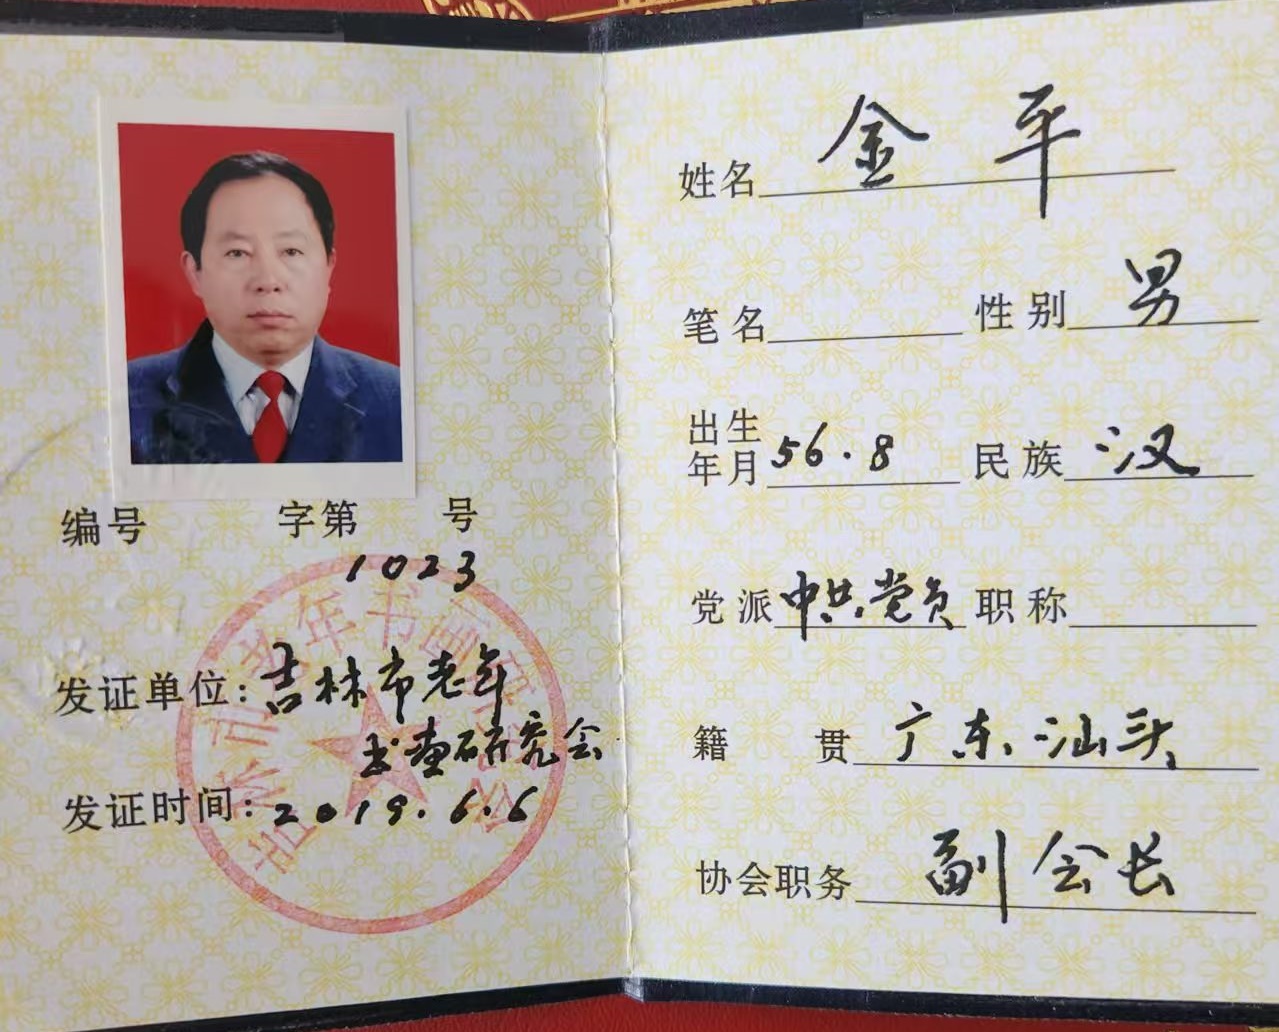 编号 字第 号
1023
发证单位：吉林市老年
书画研究会
发证时间：2019.6.6
吉林市老年书画研究会
姓名 金平
笔名 性别 男
出生年月 56.8 民族 汉
党派 中共党员 职称
籍贯 广东汕头
协会职务 副会长